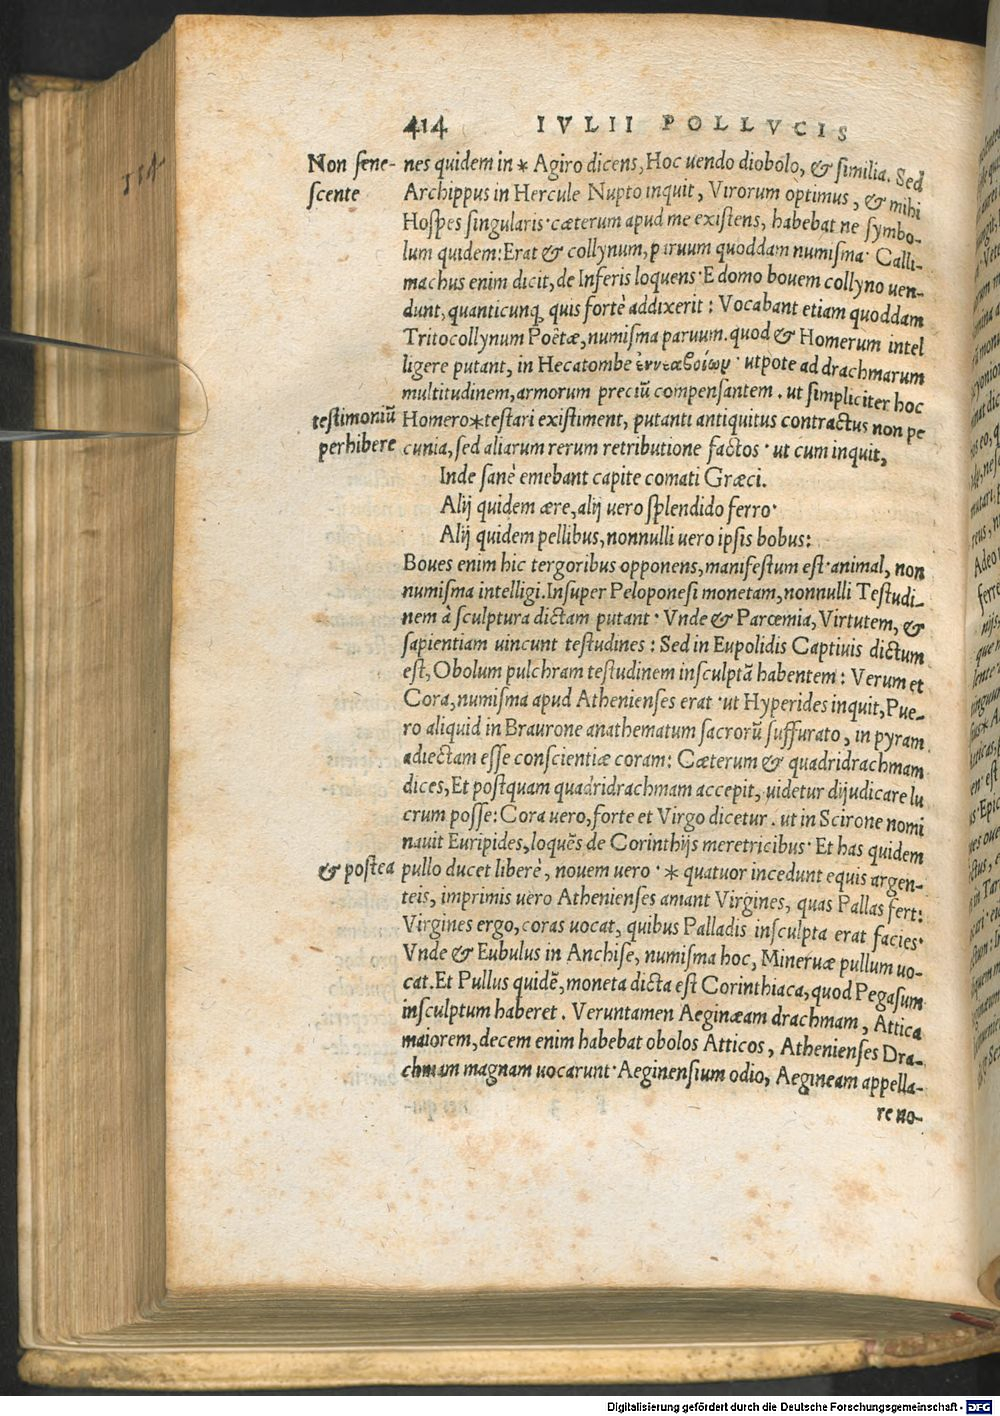 414 IVLII POLLVCIS
Non sene-
scente
nes quidem in * Agiro dicens, Hoc uendo diobolo, & similia. Sed
Archippus in Hercule Nupto inquit, Virorum optimus, & mihi
Hospes singularis· cæterum apud me existens, habebat ne symbo-
lum quidem: Erat & collynum, paruum quoddam numisma· Calli-
machus enim dicit, de Inferis loquens· E domo bouem collyno uen-
dunt, quanticunq; quis fortè addixerit: Vocabant etiam quoddam
Tritocollynum Poëtæ, numisma paruum. quod & Homerum intel
ligere putant, in Hecatombe ἐννεαβοίων· utpote ad drachmarum
multitudinem, armorum preciū compensantem. ut simpliciter hoc
testimoniū
perhibere
Homero * testari existiment, putanti antiquitus contractus non pe
cunia, sed aliarum rerum retributione factos· ut cum inquit,
Inde sanè emebant capite comati Græci.
Alij quidem ære, alij uero splendido ferro·
Alij quidem pellibus, nonnulli uero ipsis bobus:
Boues enim hic tergoribus opponens, manifestum est· animal, non
numisma intelligi. Insuper Peloponesi monetam, nonnulli Testudi-
nem à sculptura dictam putant· Vnde & Parœmia, Virtutem, &
sapientiam uincunt testudines: Sed in Eupolidis Captiuis dictum
est, Obolum pulchram testudinem insculptā habentem: Verum et
Cora, numisma apud Athenienses erat· ut Hyperides inquit, Pue-
ro aliquid in Braurone anathematum sacrorū suffurato, in pyram
adiectam esse conscientiæ coram: Cæterum & quadridrachmam
dices, Et postquam quadridrachmam accepit, uidetur dijudicare lu
crum posse: Cora uero, forte et Virgo dicetur. ut in Scirone nomi
nauit Euripides, loquēs de Corinthijs meretricibus· Et has quidem
& postea
pullo ducet liberè, nouem uero· * quatuor incedunt equis argen-
teis, imprimis uero Athenienses amant Virgines, quas Pallas fert:
Virgines ergo, coras uocat, quibus Palladis insculpta erat facies·
Vnde & Eubulus in Anchise, numisma hoc, Mineruæ pullum uo-
cat. Et Pullus quidē, moneta dicta est Corinthiaca, quod Pegasum
insculptum haberet. Veruntamen Aeginæam drachmam, Attica
maiorem, decem enim habebat obolos Atticos, Athenienses Dra-
chmam magnam uocarunt· Aeginensium odio, Aegineam appella-
re no-
Digitalisierung gefördert durch die Deutsche Forschungsgemeinschaft - DFG